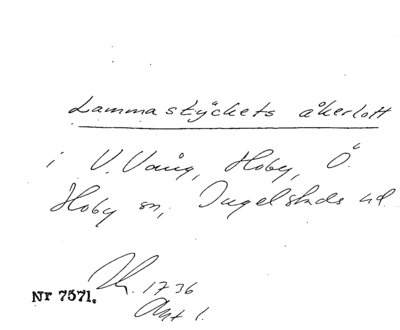 Lammastyckets åkerlott
i V. Vång, Hoby, Ö.
Hoby sn, Ingelstads hd.
1736
Akt 1.
Nr 7571.